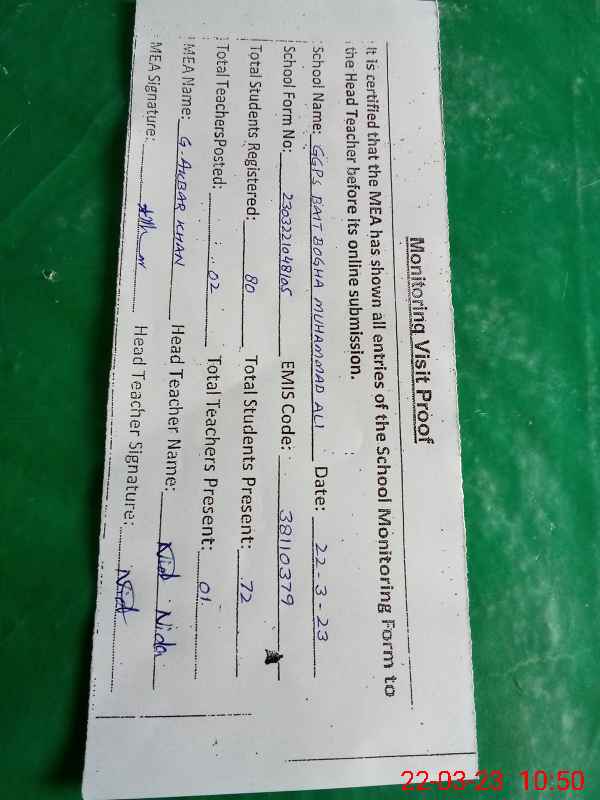 Monitoring Visit Proof
It is certified that the MEA has shown all entries of the School Monitoring Form to
the Head Teacher before its online submission.
School Name: GGPS BAIT BOGHA MUHAMMAD ALI Date: 22-3-23
School Form No: 2303221048105 EMIS Code: 38110379
Total Students Registered: 80 Total Students Present: 72
Total TeachersPosted: 02 Total Teachers Present: 01
MEA Name: G. AKBAR KHAN Head Teacher Name: Nida
MEA Signature: Head Teacher Signature:
22-03-23 10:50